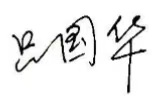 吕国华